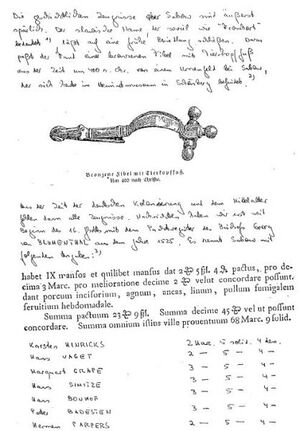 Die geschichtlichen Zeugnisse über Sabow sind äußerst
spärlich. Der slawische Name, der soviel wie "
bedeutet 1) läßt auf eine frühe Besiedlung schließen. Dazu
paßt der Fund einer bronzenen Fibel mit Tierkopffuß
aus der Zeit um 400 n. Chr. von einem Urnenfeld bei Sabow,
der sich heute im Heimatmuseum in Schönberg befindet. 2)
Bronzene Fibel mit Tierkopffuß.
Um 400 nach Christo.
Aus der Zeit der deutschen Kolonisierung und dem Mittelalter
fehlen dann alle Zeugnisse. Nachrichten haben wir erst mit
Beginn des 16. Jhdts mit dem Pachtregister des Bischofs Georg
von BLUMENTHAL aus dem Jahre 1525. Es nennt Sabow mit
folgenden Angaben: 3)
habet IX mansos et quilibet mansus dat 2 ₰ 5 ßl. 4 ₰ pactus, pro de-
cima 3 Marc. pro melioratione decime 2 ₰ velut concordare possunt.
dant porcum incisorium, agnum, ancas, linum, pullum fumigalem
seruitium hebdomadale.
Summa pactuum 23 ₰ 9 ßl. Summa decime 45 ₰ vel ut possunt
concordare. Summa omnium istius ville prouentuum 68 Marc. 9 solid.
Karsten HINRICKS 2 Marc. 5 solid. 4 den.
Hans VAGET 2 — 5 — 4 —
Marquart GRAPE 3 — 5 — 4 —
Hans 3 — 5 — 4 —
Hans BONHOF 3 — 5 — 4 —
Peter BADESIEN 2 — 5 — 4 —
Hermen PARPERS 2 — 5 — 4 —